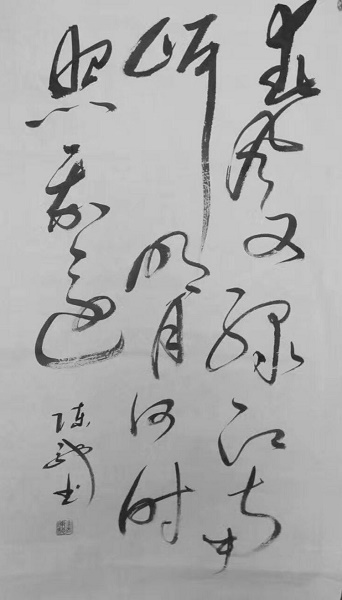 春风又绿江南
岸明月何时
照我还
陈武书